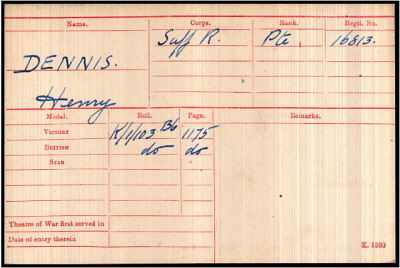 Name. Corps. Rank. Regtl. No.
DENNIS. Suff R. Pte 16813.
Henry
Medal. Roll. Page. Remarks.
VICTORY K/1/103 B6 1175
BRITISH do do
STAR
Theatre of War first served in
Date of entry therein
K. 1380